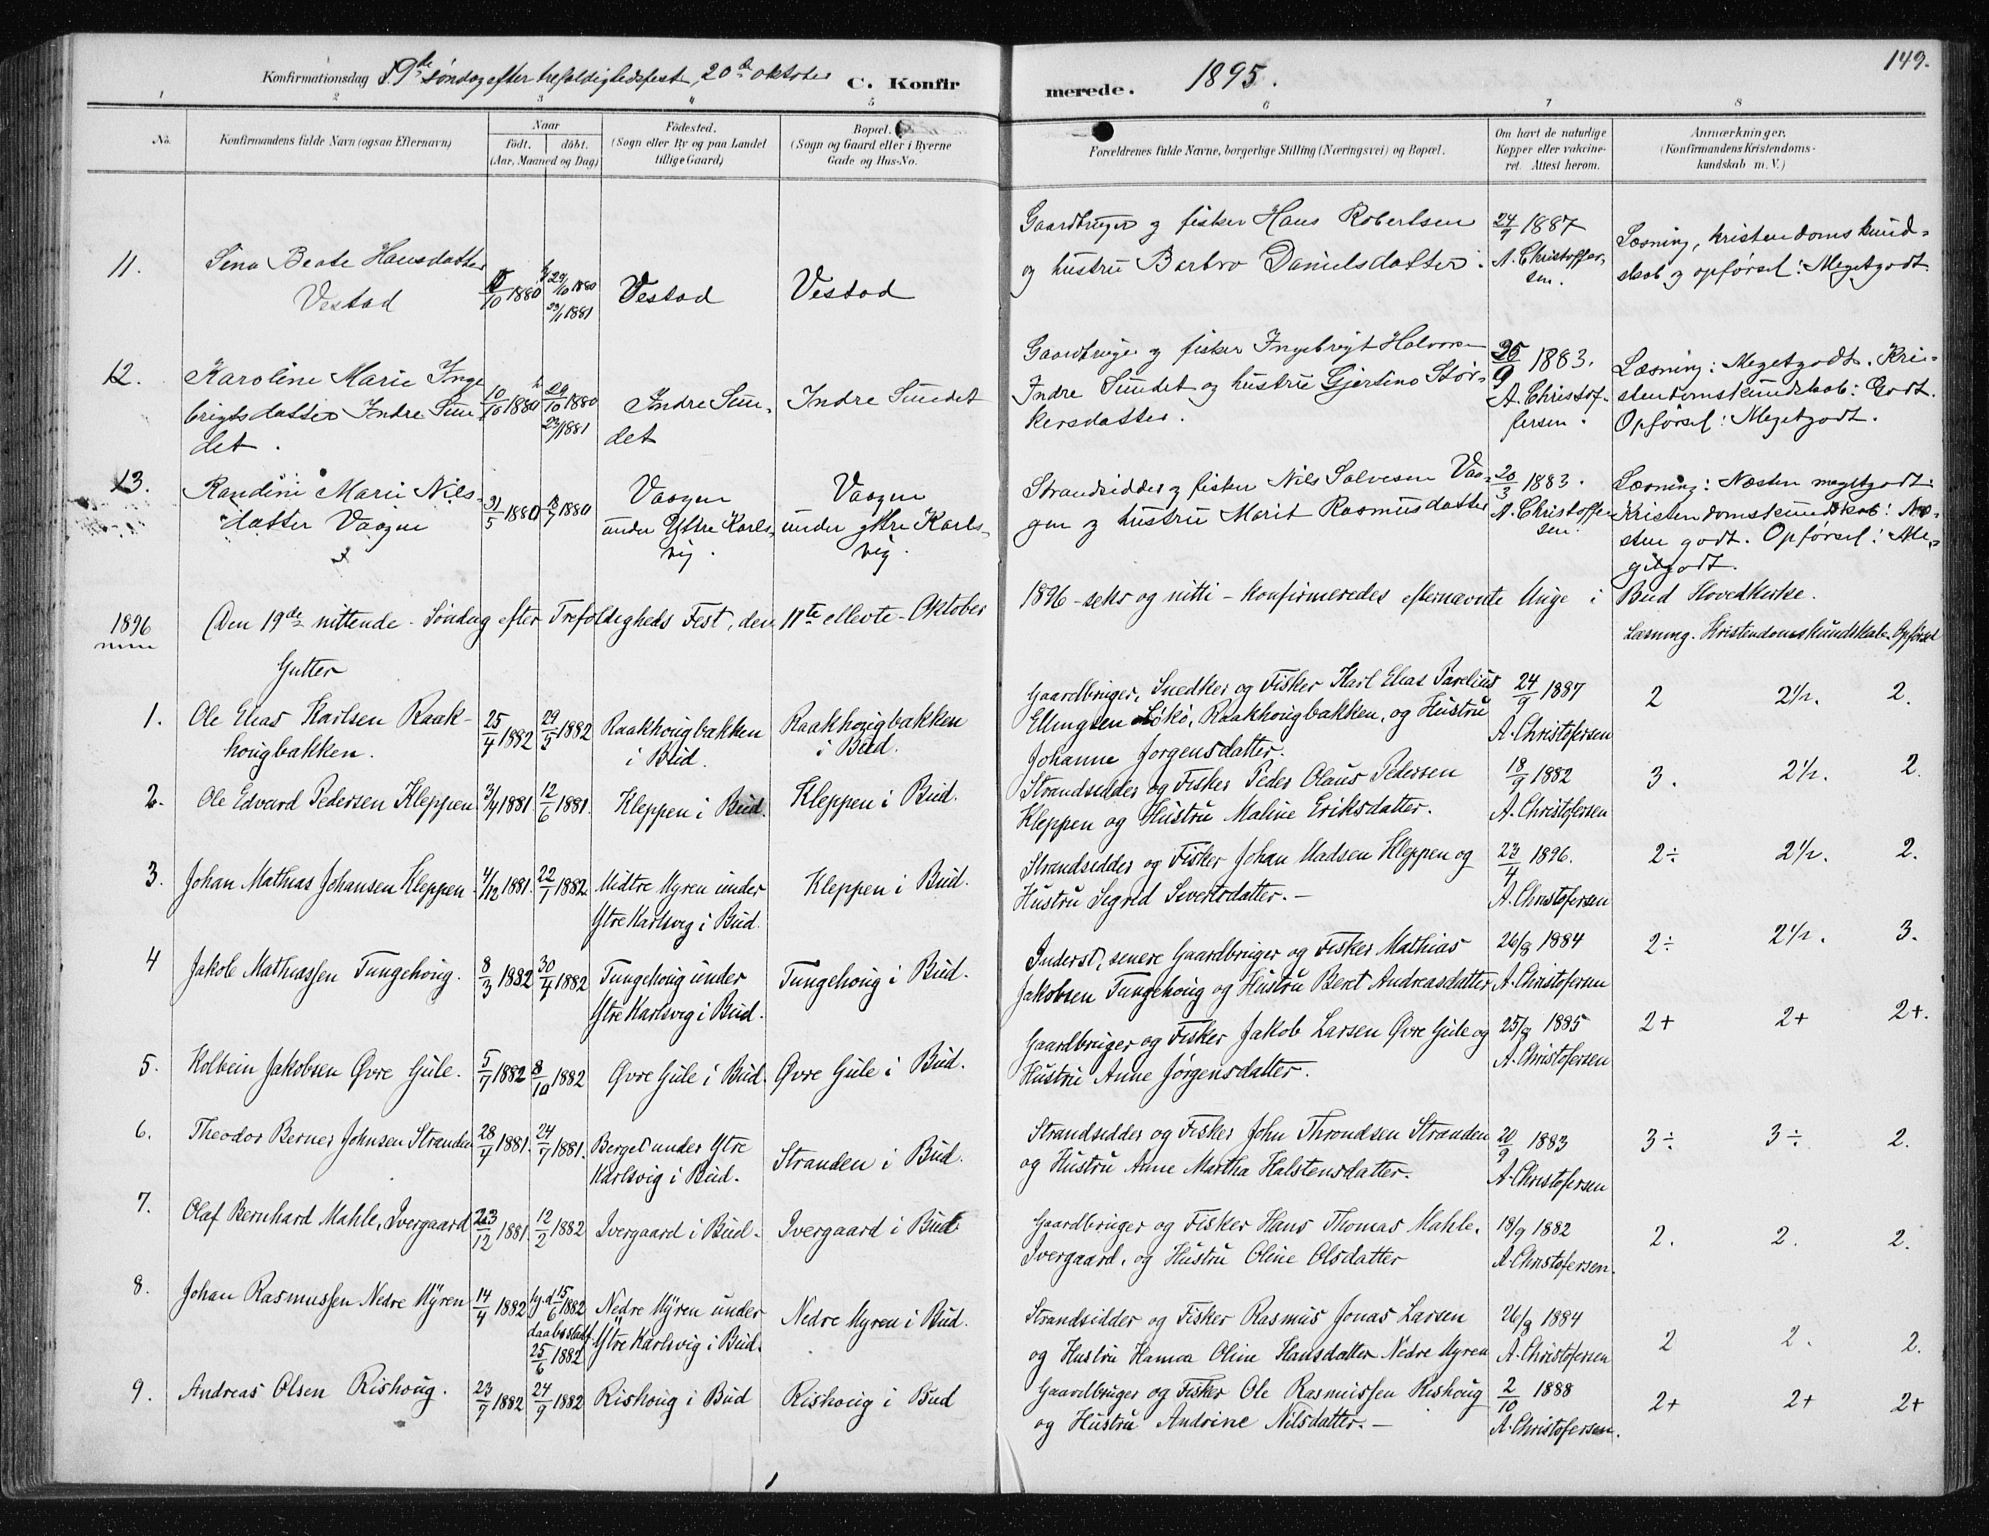 149.
Konfirmationsdag 19de søndag efter trefoldighedsfest, 20de oktober C. Konfirmerede. 1895.
1 2 3 4 5 6 7 8
No. Konfirmandens fulde Navn (ogsaa Efternavn) Naar Født. døbt. (Aar, Maaned og Dag) Fødested. (Sogn eller By og paa Landet tillige Gaard) Bopæl. (Sogn og Gaard eller i Byerne Gade og Hus-No.
Forældrenes fulde Navne, borgerlige Stilling (Næringsvei) og Bopæl. Om havt de naturlige Kopper eller vaccineret. Attest herom. Anmærkninger. (Konfirmandens Kristendomskundskab m. V.)
11. Sina Beate Hansdatter
Vestad
/10 1880
29/10 1880
23/1 1881
Vestad
Vestad
Gaardbruger og fisker Hans Robertsen
og hustru Barbro Danielsdatter.
24/9 1887
A. Christoffer-
sen.
Læsning, kristendomskund-
skab og opførsel: Megetgodt
12. Karoline Marie Inge
brigtsdatter Indre Sun
det.
10/10 1880
29/10 1880
23/1 1881
Indre Sun-
det
Indre Sundet
Gaardbruger og fisker Ingebrigt Halvors-
Indre Sundet og hustru Gjertine Stør-
kersdatter.
25/9 1883.
A. Christof-
fersen.
Læsning: Megetgodt. Kri-
stendomskundskab: Godt.
Opførsel: Megetgodt.
13. Randine Marie Nils-
datter Vaagen
31/5 1880
18/7 1880
Vaagen
under Ytre Karls-
vig.
Vaagen
under ytre Karls-
vig.
Strandsidder og fisker Nils Salvesen Vaa-
gen og hustru Marit Rasmusdatter
20/3 1883.
A. Christoffer-
sen.
Læsning: Næsten megetgodt
Kristendomskundskab: Næ-
sten godt. Opførsel: Me-
getgodt.
1896 Den 19de nittende Søndag efter Trefoldigheds Fest, den 11te ellevte Oktober 1896 - seks og nitti - konfirmeredes efternævnte Unge i Bud Hovedkirke.
Læsning. Kristendomskundskab. Opførsel
Gutter
1. Ole Elias Karlsen Raak-
hougbakken.
25/4 1882
29/5 1882
Raakhougbakken
i Bud.
Raakhougbakken
i Bud.
Gaardbruger, Snedker og Fisker Karl Elias Parelius
Ellingsen Løkø, Raakhougbakken, og Hustru
Johanne Jørgensdatter.
24/9 1887
A. Christofersen
2 2½. 2.
2. Ole Edvard Pedersen Kleppen
3/4 1881
12/6 1881.
Kleppen i Bud.
Kleppen i Bud.
Strandsidder og Fisker Peder Olaus Pedersen
Kleppen og Hustru Maline Eriksdatter.
18/9 1882
A. Christofersen
3. 2½. 2.
3. Johan Mathias Johansen Kleppen
4/12 1881.
22/1 1882
Midtre Myren under
Ytre Karlsvig i Bud.
Kleppen i Bud.
Strandsidder og Fisker Johan Madsen Kleppen og
Hustru Segred Sivertsdatter. -
23/4 1896.
A. Christofersen
2÷ 2½. 2.
4 Jakob Mathiassen Tungehoug.
8/3 1882
30/4 1882
Tungehoug under
Ytre Karlsvig i Bud.
Tungehoug i Bud.
Inderst, senere Gaardbruger og Fisker Mathias
Jakobsen Tungehoug og Hustru Beret Andreasdatter
26/8 1884
A. Christofersen
2÷ 2½. 3.
5. Kolbein Jakobsen Øvre Gule.
5/7 1882
8/10 1882
Øvre Gule i Bud.
Øvre Gule i Bud.
Gaardbruger og Fisker Jakob Larsen Øvre Gule og
Hustru Anne Jørgensdatter.
25/8 1885
A. Christofersen
2+ 2+ 2+.
6. Theodor Berner Johnsen Stranden
28/4 1881.
24/7 1881.
Berget under Ytre
Karlsvig i Bud.
Stranden i Bud.
Strandsidder og Fisker John Throndsen Stranden
og Hustru Anne Martha Halstensdatter.
20/9 1883
A. Christofersen
3÷ 3÷ 2.
7. Olaf Bernhard Mahle, Ivergaard
23/12 1881.
12/2 1882
Ivergaard i Bud.
Ivergaard i Bud
Gaardbruger og Fisker Hans Thomas Mahle,
Ivergaard, og Hustru Oline Olsdatter
18/9 1882
A. Christofersen.
2. 2. 2.
8. Johan Rasmussen Nedre Myren
14/4 1882
hj.d 15/6 1882
daabsstadf.
25/6 1882
Nedre Myren under
Ytre Karlsvig i Bud.
Nedre Myren i Bud.
Strandsidder og Fisker Rasmus Jonas Larsen
og Hustru Hanna Oline Hansdatter Nedre Myren
26/8 1884
A. Christofersen
2 2. 2.
9. Andreas Olsen Rishoug.
23/7 1882
24/9 1882
Rishoug i Bud
Rishoug i Bud
Gaardbruger og Fisker Ole Rasmussen Rishoug
og Hustru Andrine Nilsdatter. -
2/10 1888
A. Christofersen.
2+ 2+ 2+